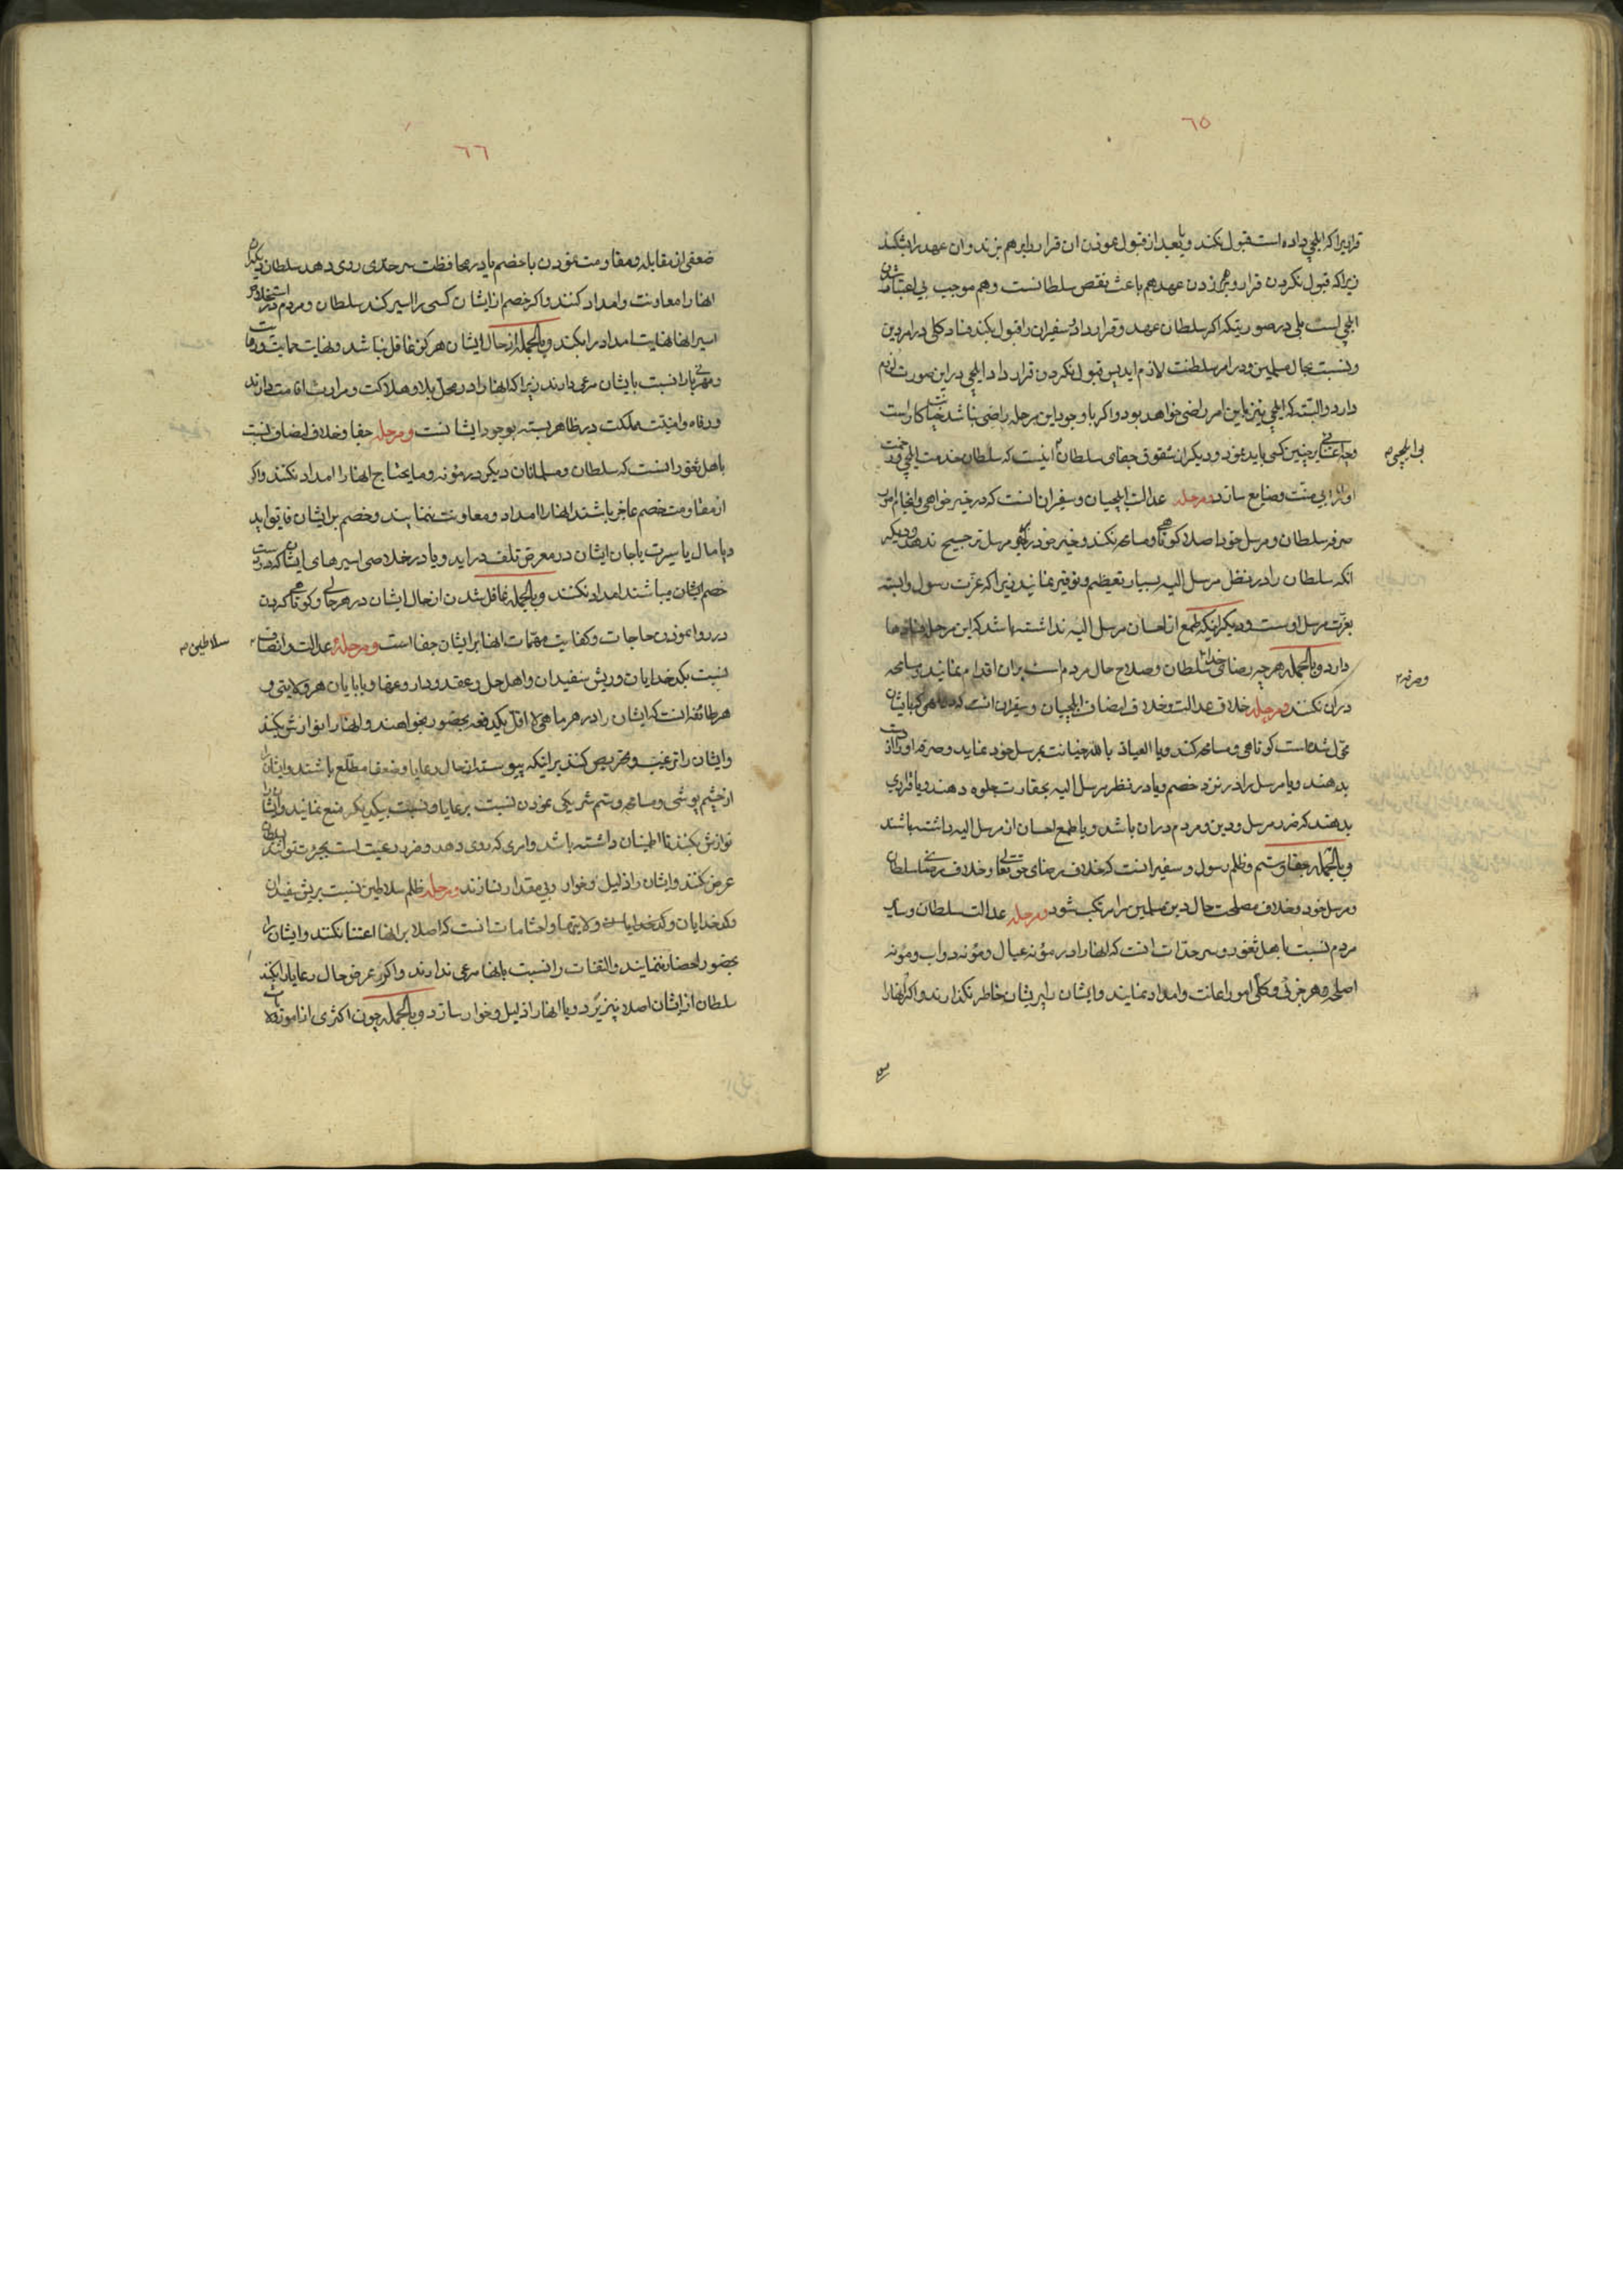 ٦٥
قراریرا که ایلچی داده است قبول نکند و یا بعد از قبول نمودن ان قرار را برهم بزند و ان عهد را بشکند
زیرا که قبول نکردن قرار و برهم زدن عهد هم باعث نقص سلطانست و هم موجب بی اعتبار شدن
ایلچی است بلی در صورتیکه اکر سلطان عهد و قرارداد سفیران را قبول بکند فساد کلی در امر دین
و نسبت بحال مسلمین و در امر سلطنت لازم اید پس قبول نکردن قرارداد ایلچی در این صورت لزوم
دارد و البته که ایلچی نیز باین امر راضی خواهد بود و اکر با وجود این مرحله راضی نباشد خیانت کار است
و چه اعتنائی بر چنین کسی باید نمود و دیکر از شقوق جفای سلطان اینست که سلطان خدمت ایلچی و زحمت
او را بی منت و ضایع سازد و مرحله عدالت ایلچیان و سفیران انست که در خیر خواهی و انجام امور
صرفه سلطان و مرسل خود اصلا کوتاهی و مسامحه نکند و خیر خود را بخیر مرسل ترجیح ندهد و دیکر
انکه سلطان را در نظر مرسل الیه بسیار تعظیم و توقیر نمایند زیرا که عزت رسول وابسته
بعزت مرسل اوست و دیکر اینکه طمع از احسان مرسل الیه نداشته باشد که این مرحله فسادها
دارد و بالجمله هر چه رضای خدا و سلطان و صلاح حال مردم است بران اقدام نمایند و مسامحه
دران نکنند و مرحله خلاف عدالت و خلاف انصاف ایلچیان و سفیران انست که در مهمی که بایشان
محول شده است کوتاهی و مسامحه کند و یا العیاذ بالله خیانت بمرسل خود نماید و صرفه او را از دست
بدهند و یا مرسل را در نزد خصم و یا در نظر مرسل الیه بحقارت جلوه دهند و یا قراری
بدهند که ضرر مرسل و دین و مردم دران باشد و یا طمع احسان از مرسل الیه داشته باشند
و بالجمله جفا و ستم و ظلم رسول و سفیر انست که خلاف رضای حق تعالی و خلاف رضای سلطان
و مرسل خود و خلاف مصلحت حال دین مسلمین را مرتکب شود و مرحله عدالت سلطان و سایر
مردم نسبت باهل ثغور و سرحدات انست که انها را در مؤنه عیال و مؤنه دواب و مؤنه
اسلحه و هر جزئی و کلی امور اعانت و امداد نمایند و ایشان را پریشان خاطر نکذارند و اکر انها را
بی ایلچی
و صرفه
٦٦
ضعفی از مقابله و مقاومت نمودن با خصم یا در محافظت سرحدی روی دهد سلطان دیکران
انها را معاونت و امداد کنند و اکر خصم از ایشان کسی را اسیر کند سلطان و مردم در استخلاص
اسیر انها نهایت امداد را بکنند و بالجمله از حال ایشان هرکز غافل نباشند و نهایت حمایت و رعایت
و مهربانی را نسبت بایشان مرعی دارند زیرا که انها را در محل بلا و هلاکت و مرارت اقامت دارند
و رفاه و امنیت مملکت در ظاهر بسته بوجود ایشانست و مرحله جفا و خلاف انصاف نسبت
باهل ثغور انست که سلطان و مسلمانان دیکر در مؤنه و مایحتاج انها را امداد نکنند و اکر
از مقاومت خصم عاجز باشند انها را امداد و معاونت ننمایند و خصم بر ایشان فایق اید
و یا مال یا سیرت یا جان ایشان در معرض تلف دراید و یا در خلاصی اسیرهای ایشان که در دست
خصم ایشان میباشند امداد نکنند و بالجمله غافل شدن از حال ایشان در هر حالی و کوتاهی کردن
در روا نمودن حاجات و کفایت مهمات انها بر ایشان جفا است و مرحلهٔ عدالت و انصاف
نسبت بکدخدایان و ریش سفیدان و اهل حل و عقد و دار و عرفا و بابایان هر ولایتی و
هر طائفه انست که ایشان را در هر ماهی لا اقل یکدفعه بحضور بخواهند و انها را نوازش بکنند
و ایشان را ترغیب و تحریص کنند بر اینکه پیوسته از حال رعایا و ضعفا مطلع باشند و ایشان را
از چشم پوشی و مسامحه و ستم شریکی نمودن نسبت برعایا و نسبت بیکدیکر منع نمایند و ایشان را
نوازش بکنند تا اطمینان داشته باشد و امری که روی دهد و ضرر رعیت است بجرئت توانند بسلطان
عرض کنند و ایشان را ذلیل و خوار و بی مقدار نسازند و مرحله ظلم سلاطین نسبت بریش سفیدان
و کدخدایان و کدخدایان ولایتها و احشامات انست که اصلا بر انها اعتنا نکنند و ایشان را
بحضور احضار ننمایند و التفات را نسبت بانها مرعی ندارند و اکر عرض حال رعایا را بکنند
سلطان از ایشان اصلا نپذیرد و یا انها را ذلیل و خوار سازد و بالجمله چون اکثری از امورات
سلاطین